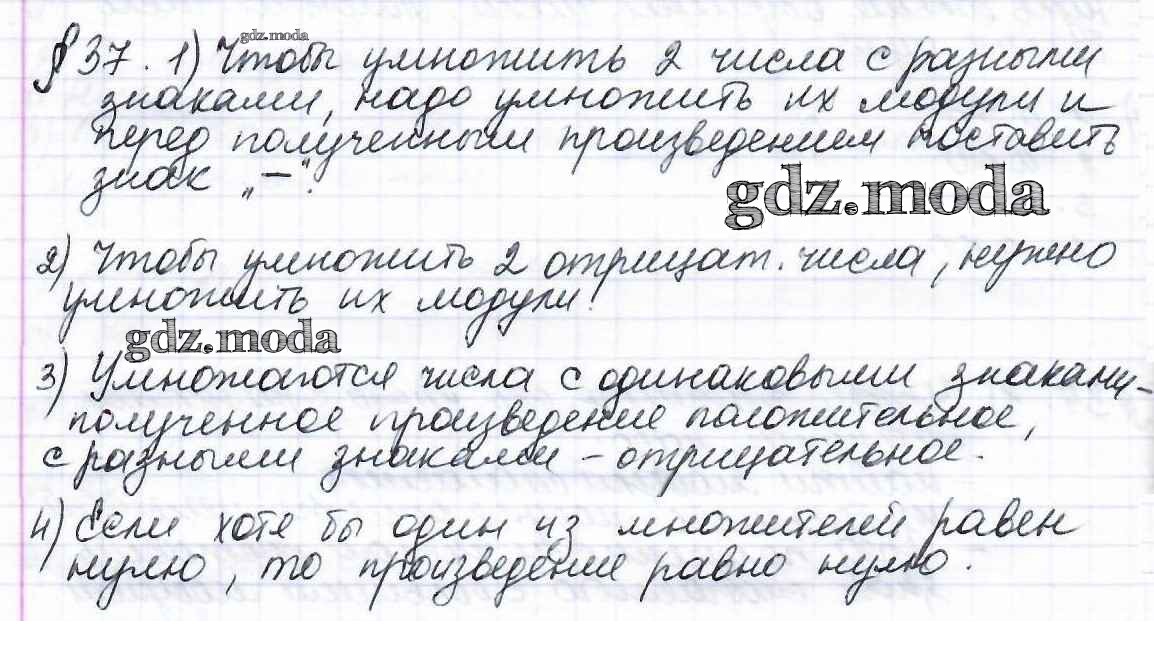 gdz.moda
§ 37. 1) Чтобы умножить 2 числа с разными
знаками, надо умножить их модули и
перед полученным произведением поставить
знак „–“.
gdz.moda
2) Чтобы умножить 2 отрицат. числа, нужно
умножить их модули.
gdz.moda
3) Умножаются числа с одинаковыми знаками –
полученное произведение положительное,
с разными знаками – отрицательное.
4) Если хотя бы один из множителей равен
нулю, то произведение равно нулю.